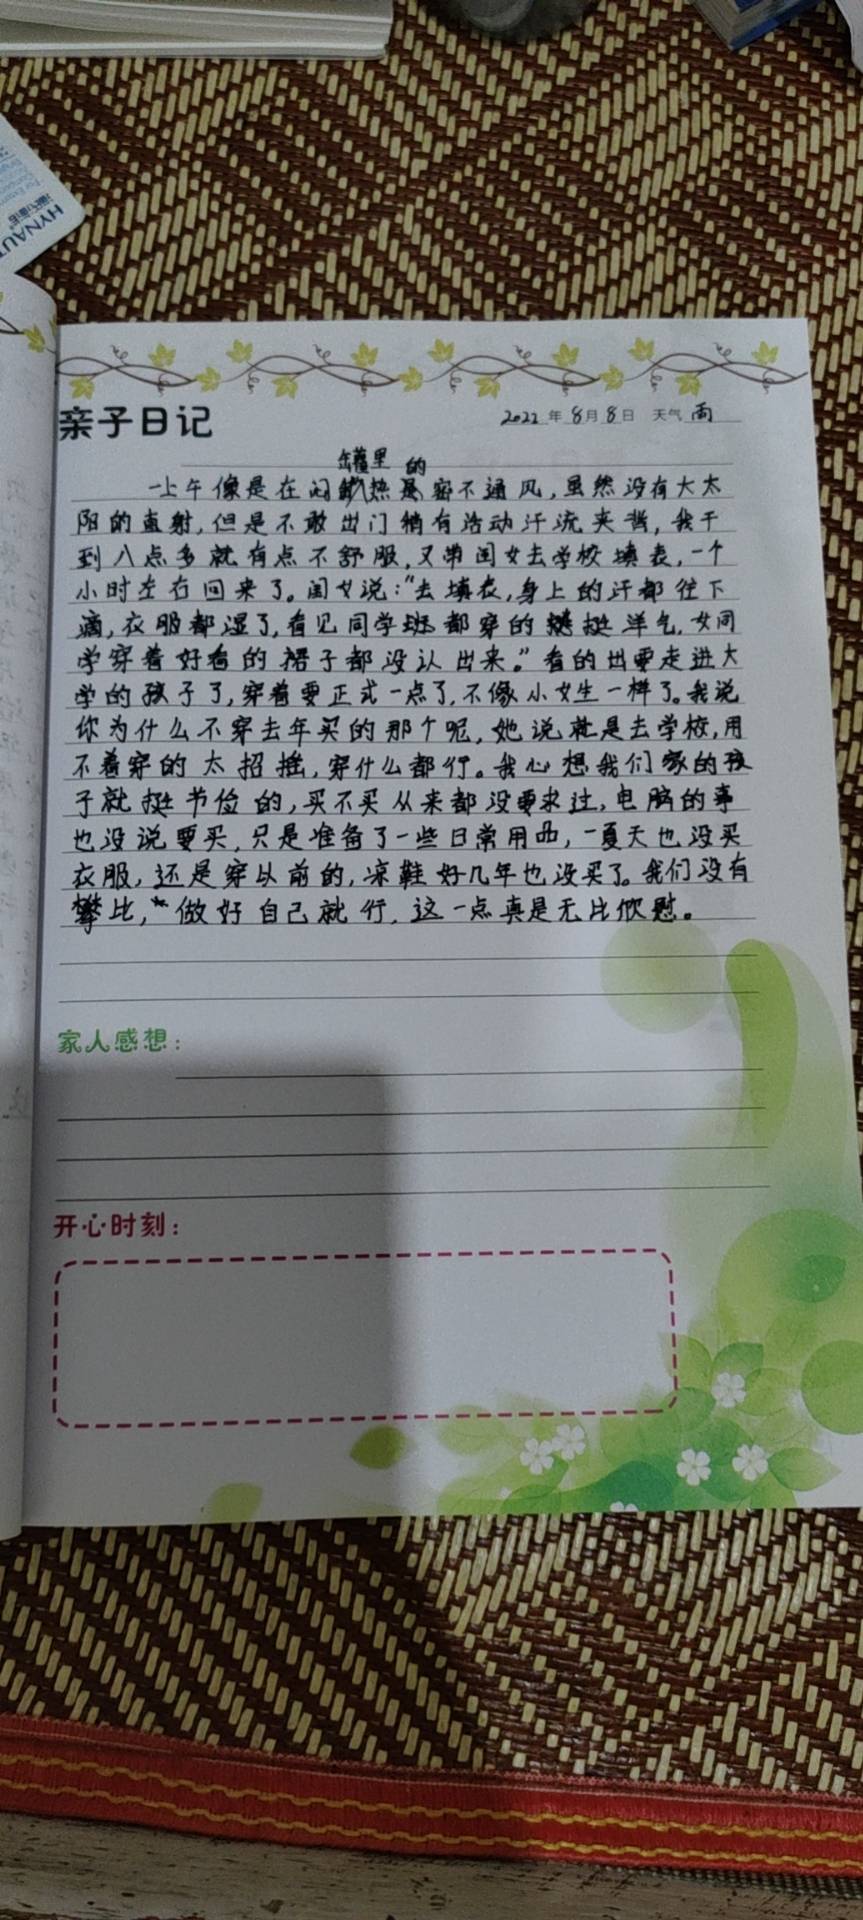 HYNAUT
亲子日记
2022年8月8日 天气 雨
罐里 的
一上午像是在闷热密不通风,虽然没有大太
阳的直射,但是不敢出门稍有活动汗流夹背,我干
到八点多就有点不舒服,又带闺女去学校填表,一个
小时左右回来了。闺女说:“去填表,身上的汗都往下
滴,衣服都湿了,看见同学班都穿的挺挺洋气,女同
学穿着好看的裙子都没认出来。”看的出要走进大
学的孩子了,穿着要正式一点了,不像小女生一样了。我说
你为什么不穿去年买的那个呢,她说就是去学校,用
不着穿的太招摇,穿什么都行。我心想我们家的孩
子就挺节俭的,买不买从来都没要求过,电脑的事
也没说要买,只是准备了一些日常用品,一夏天也没买
衣服,还是穿以前的,凉鞋好几年也没买了。我们没有
攀比,做好自己就行,这一点真是无比欣慰。
家人感想:
开心时刻: